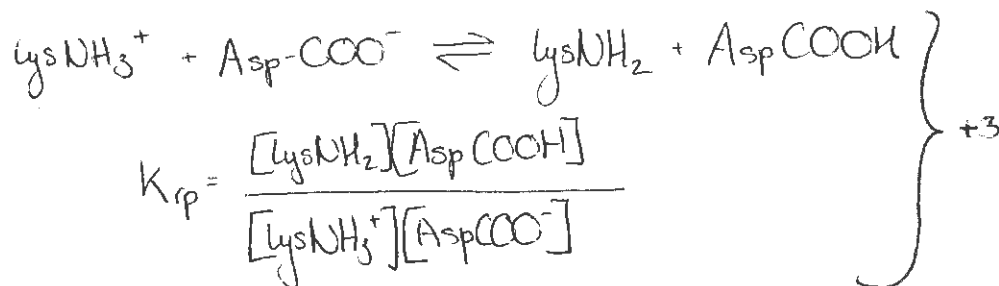 lysNH₃⁺ + Asp-COO⁻ ⇌ lysNH₂ + AspCOOH
+3
K_rp = [lysNH₂][AspCOOH] / [lysNH₃⁺][AspCOO⁻]